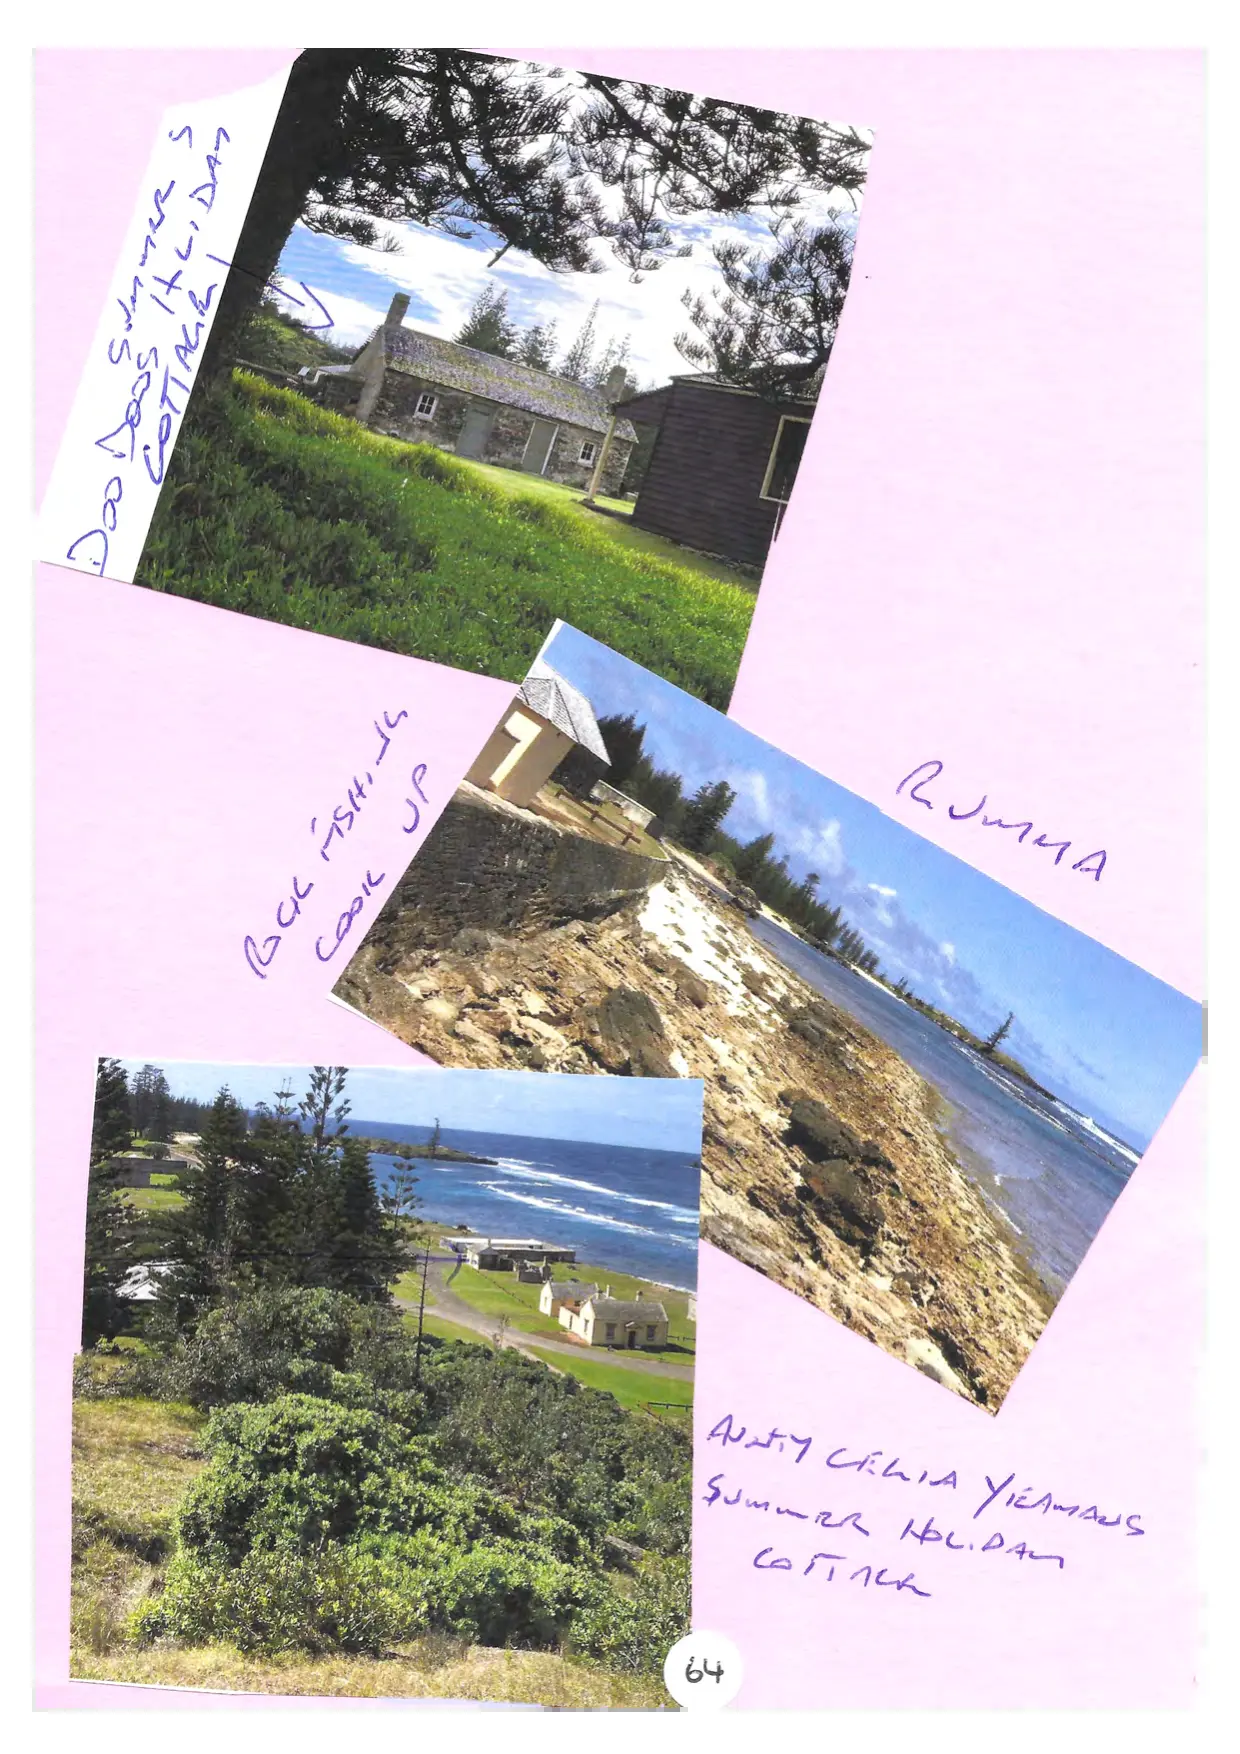 DOO DOOS SUMMER'S
HLIDAY
COTTAGE
ROCK FISHING
COOK UP
RUMMA
AUNTY CELIA YEAMANS
SUMMER HOLIDAY
COTTAGE
64